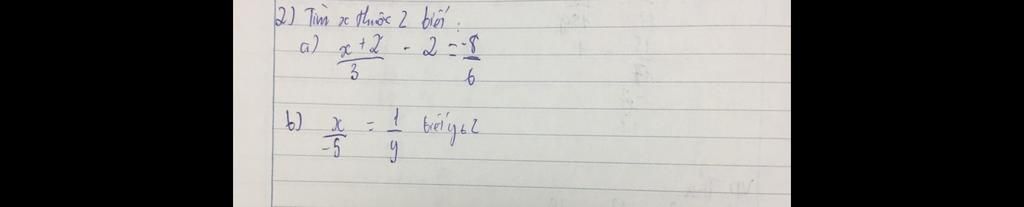 2) Tìm x thuộc Z biết:
a) \frac{x+2}{3} - 2 = \frac{-8}{6}
b) \frac{x}{-5} = \frac{1}{y} biết y ∈ Z